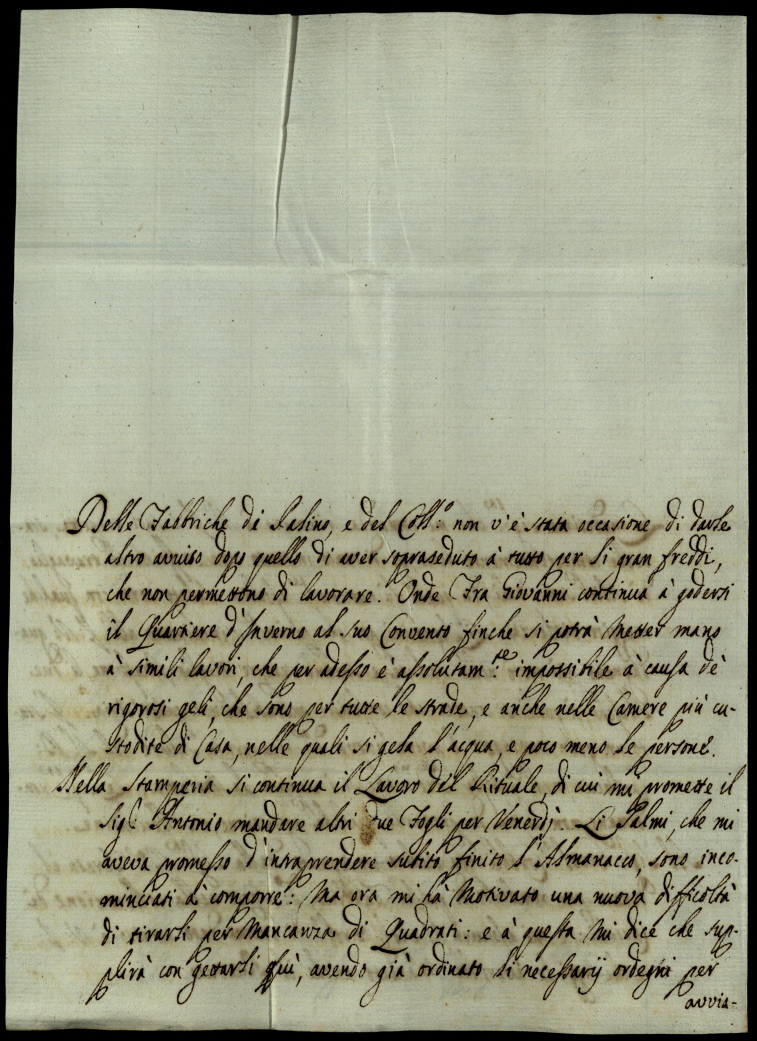 Delle Fabbriche di Salino, e del Coll.º non v'è stata occasione di darle
altro avviso dopo quello di aver sopraseduto à tutto per li gran freddi,
che non permettono di lavorare. Onde Fra Giovanni continua à godersi
il Quartiere d'Inverno al suo Convento finche si potrà metter mano
à simili lavori, che per adesso è assolutam.te impossibile à causa de
rigorosi geli, che sono per tutte le strade, e anche nelle Camere più cu-
stodite di Casa, nelle quali si gela l'acqua, e poco meno le persone.
Nella Stamperia si continua il Lavoro del Rituale, di cui mi promette il
Sig.r Antonio mandare altri due Fogli per Venerdj. Li Salmi, che mi
aveva promesso d'intraprendere subito finito l'Almanacco, sono inco-
minciati à comporre: Ma ora mi hà Motivato una nuova difficoltà
di tirarli per Mancanza di Quadrati: e à questa Mi dice che sup-
plirà con gettarli quì, avendo già ordinato li necessarij ordegni per
avvia-